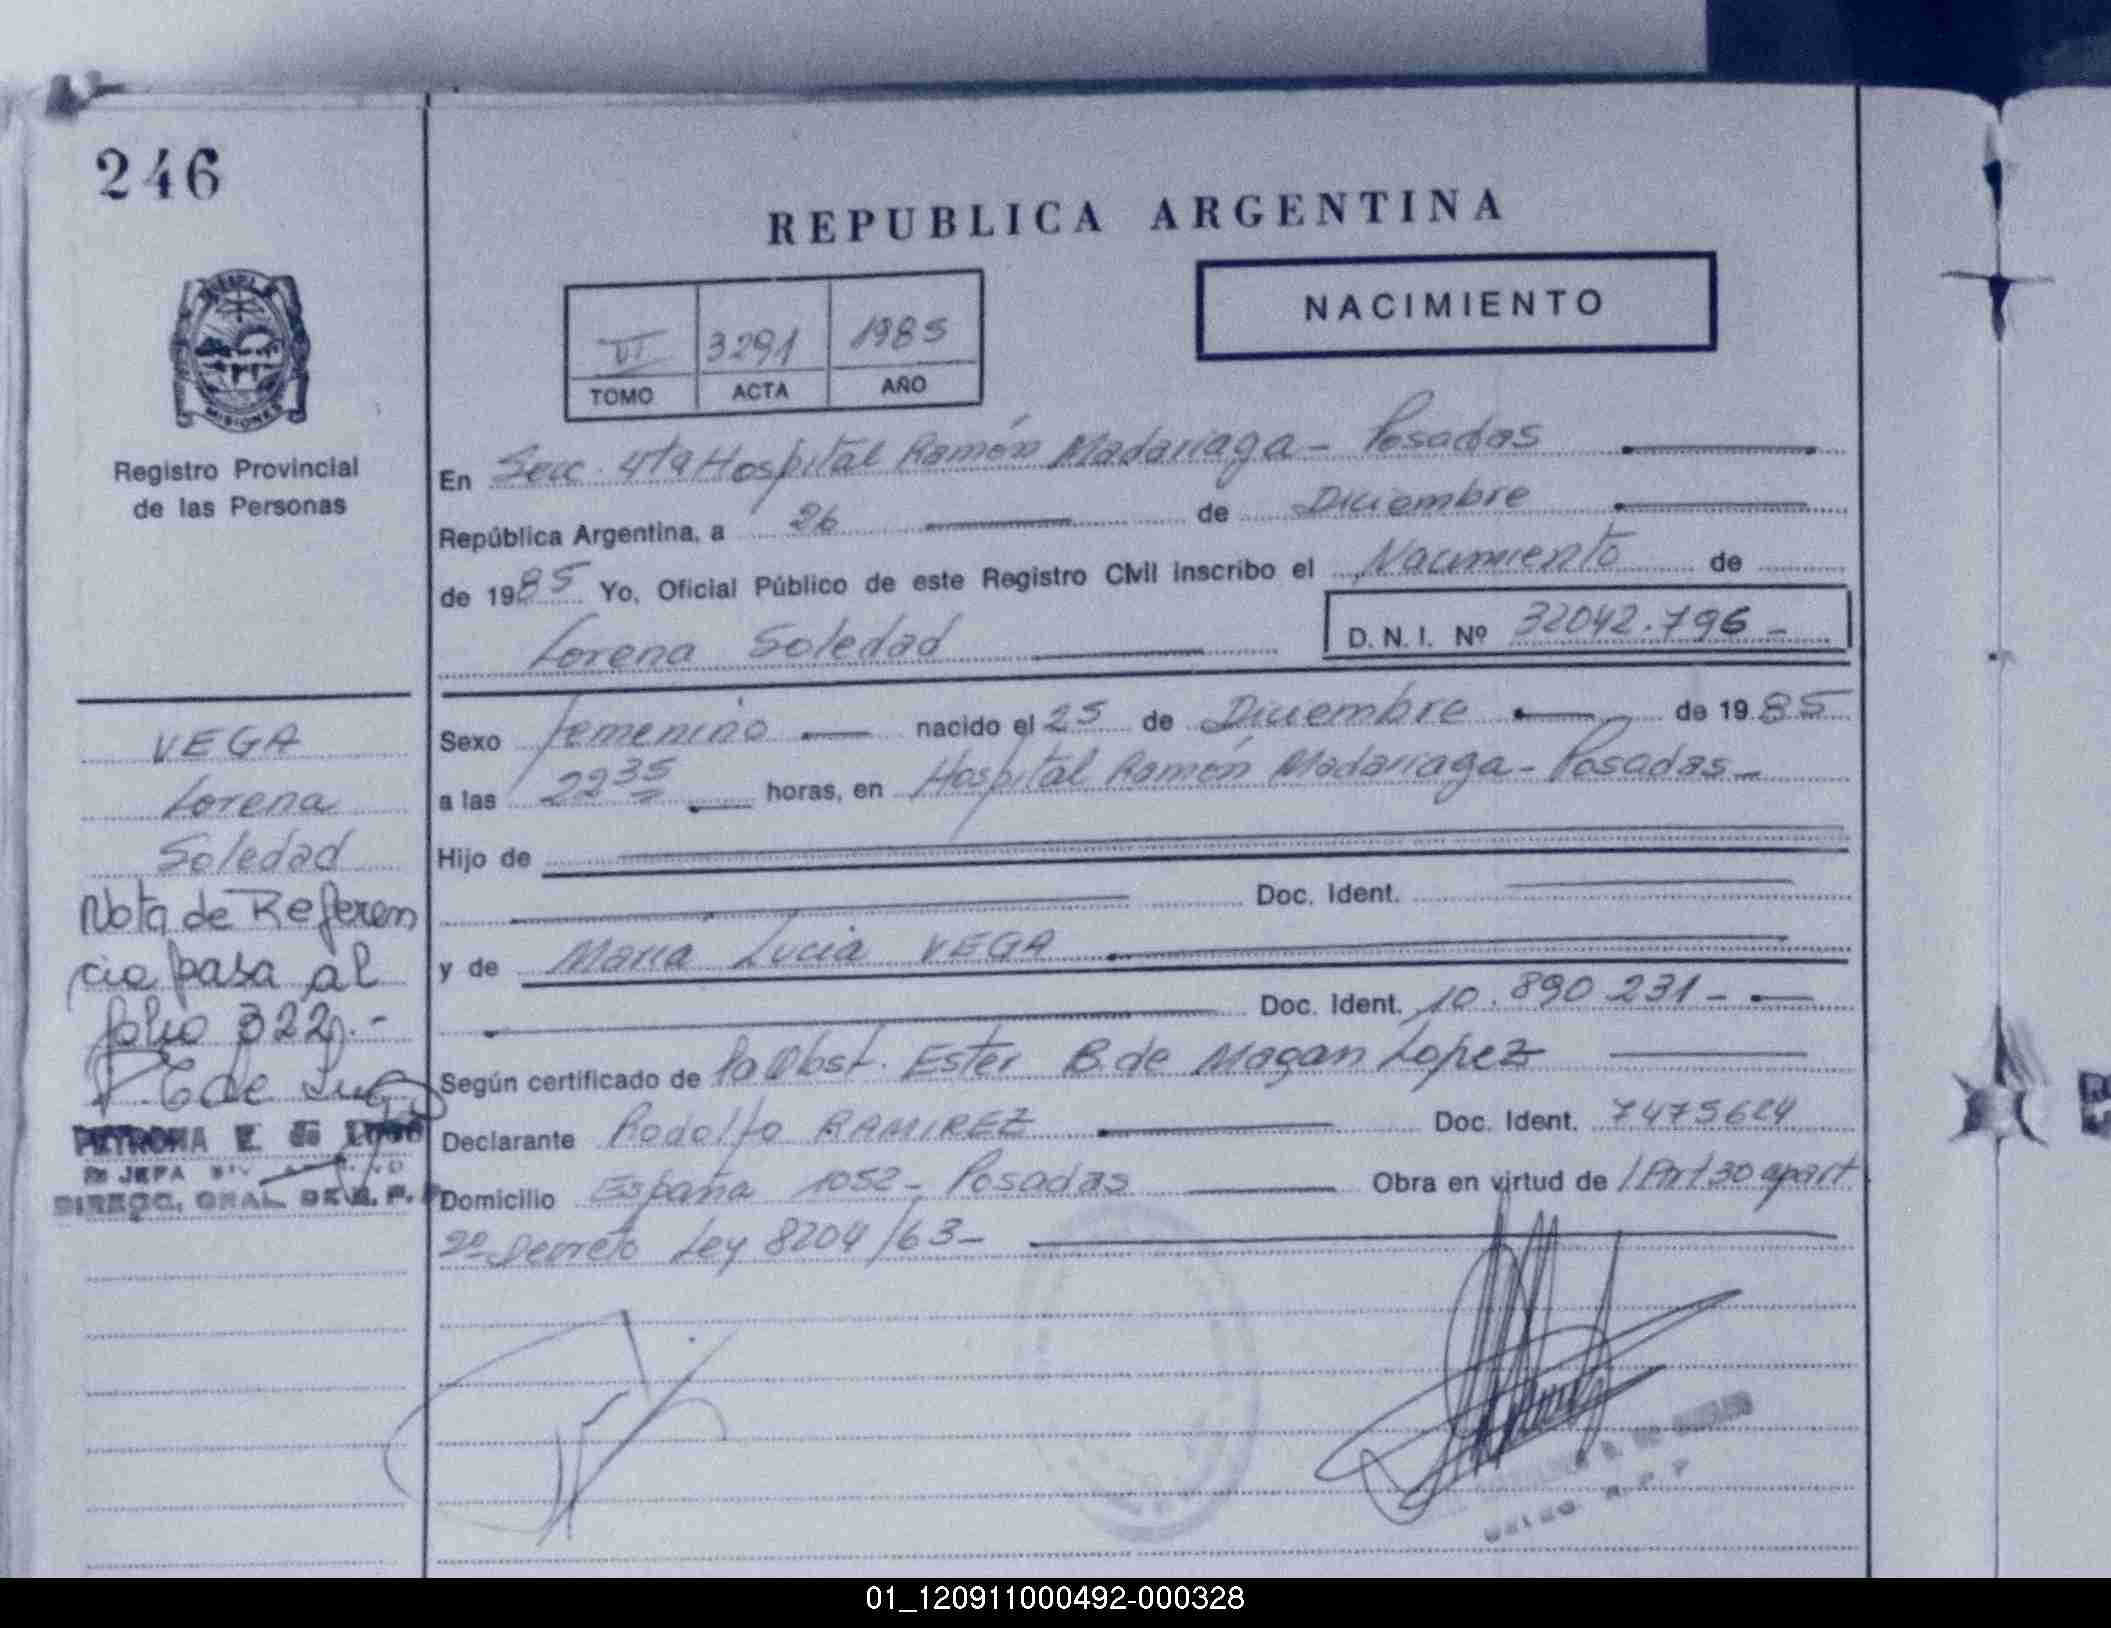 246
REPUBLICA ARGENTINA
NACIMIENTO
VI 3291 1985
TOMO ACTA AÑO
MISIONES
Registro Provincial
de las Personas
En Secc. 4ta Hospital Ramón Madariaga - Posadas
República Argentina, a 26 de Diciembre
de 1985 Yo, Oficial Público de este Registro Civil inscribo el Nacimiento de
Lorena Soledad D.N.I. Nº 32042.796 -
VEGA
Lorena
Soledad
Nota de Referen
cia pasa al
folio 322.-
PETRONA E. de
JEFA
DIRECC. GRAL. DE R. P. P.
Sexo femenino nacido el 25 de Diciembre de 1985
a las 22 35 horas, en Hospital Ramón Madariaga - Posadas -
Hijo de
Doc. Ident.
y de Maria Lucia VEGA
Doc. Ident. 10.890 231 -
Según certificado de la Obst. Ester B. de Magan Lopez
Declarante Rodolfo RAMIREZ Doc. Ident. 7475624
Domicilio España 1052 - Posadas Obra en virtud de / Art 30 apart
2º Decreto Ley 8204/63 -
R. P. P
01_120911000492-000328